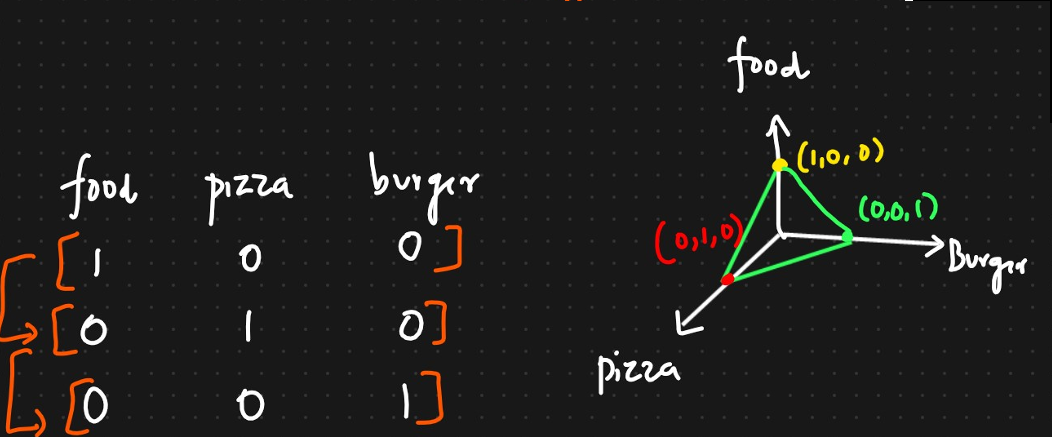 food pizza burger
[1 0 0]
[0 1 0]
[0 0 1]
food
(1,0,0)
(0,0,1)
(0,1,0)
Burger
pizza